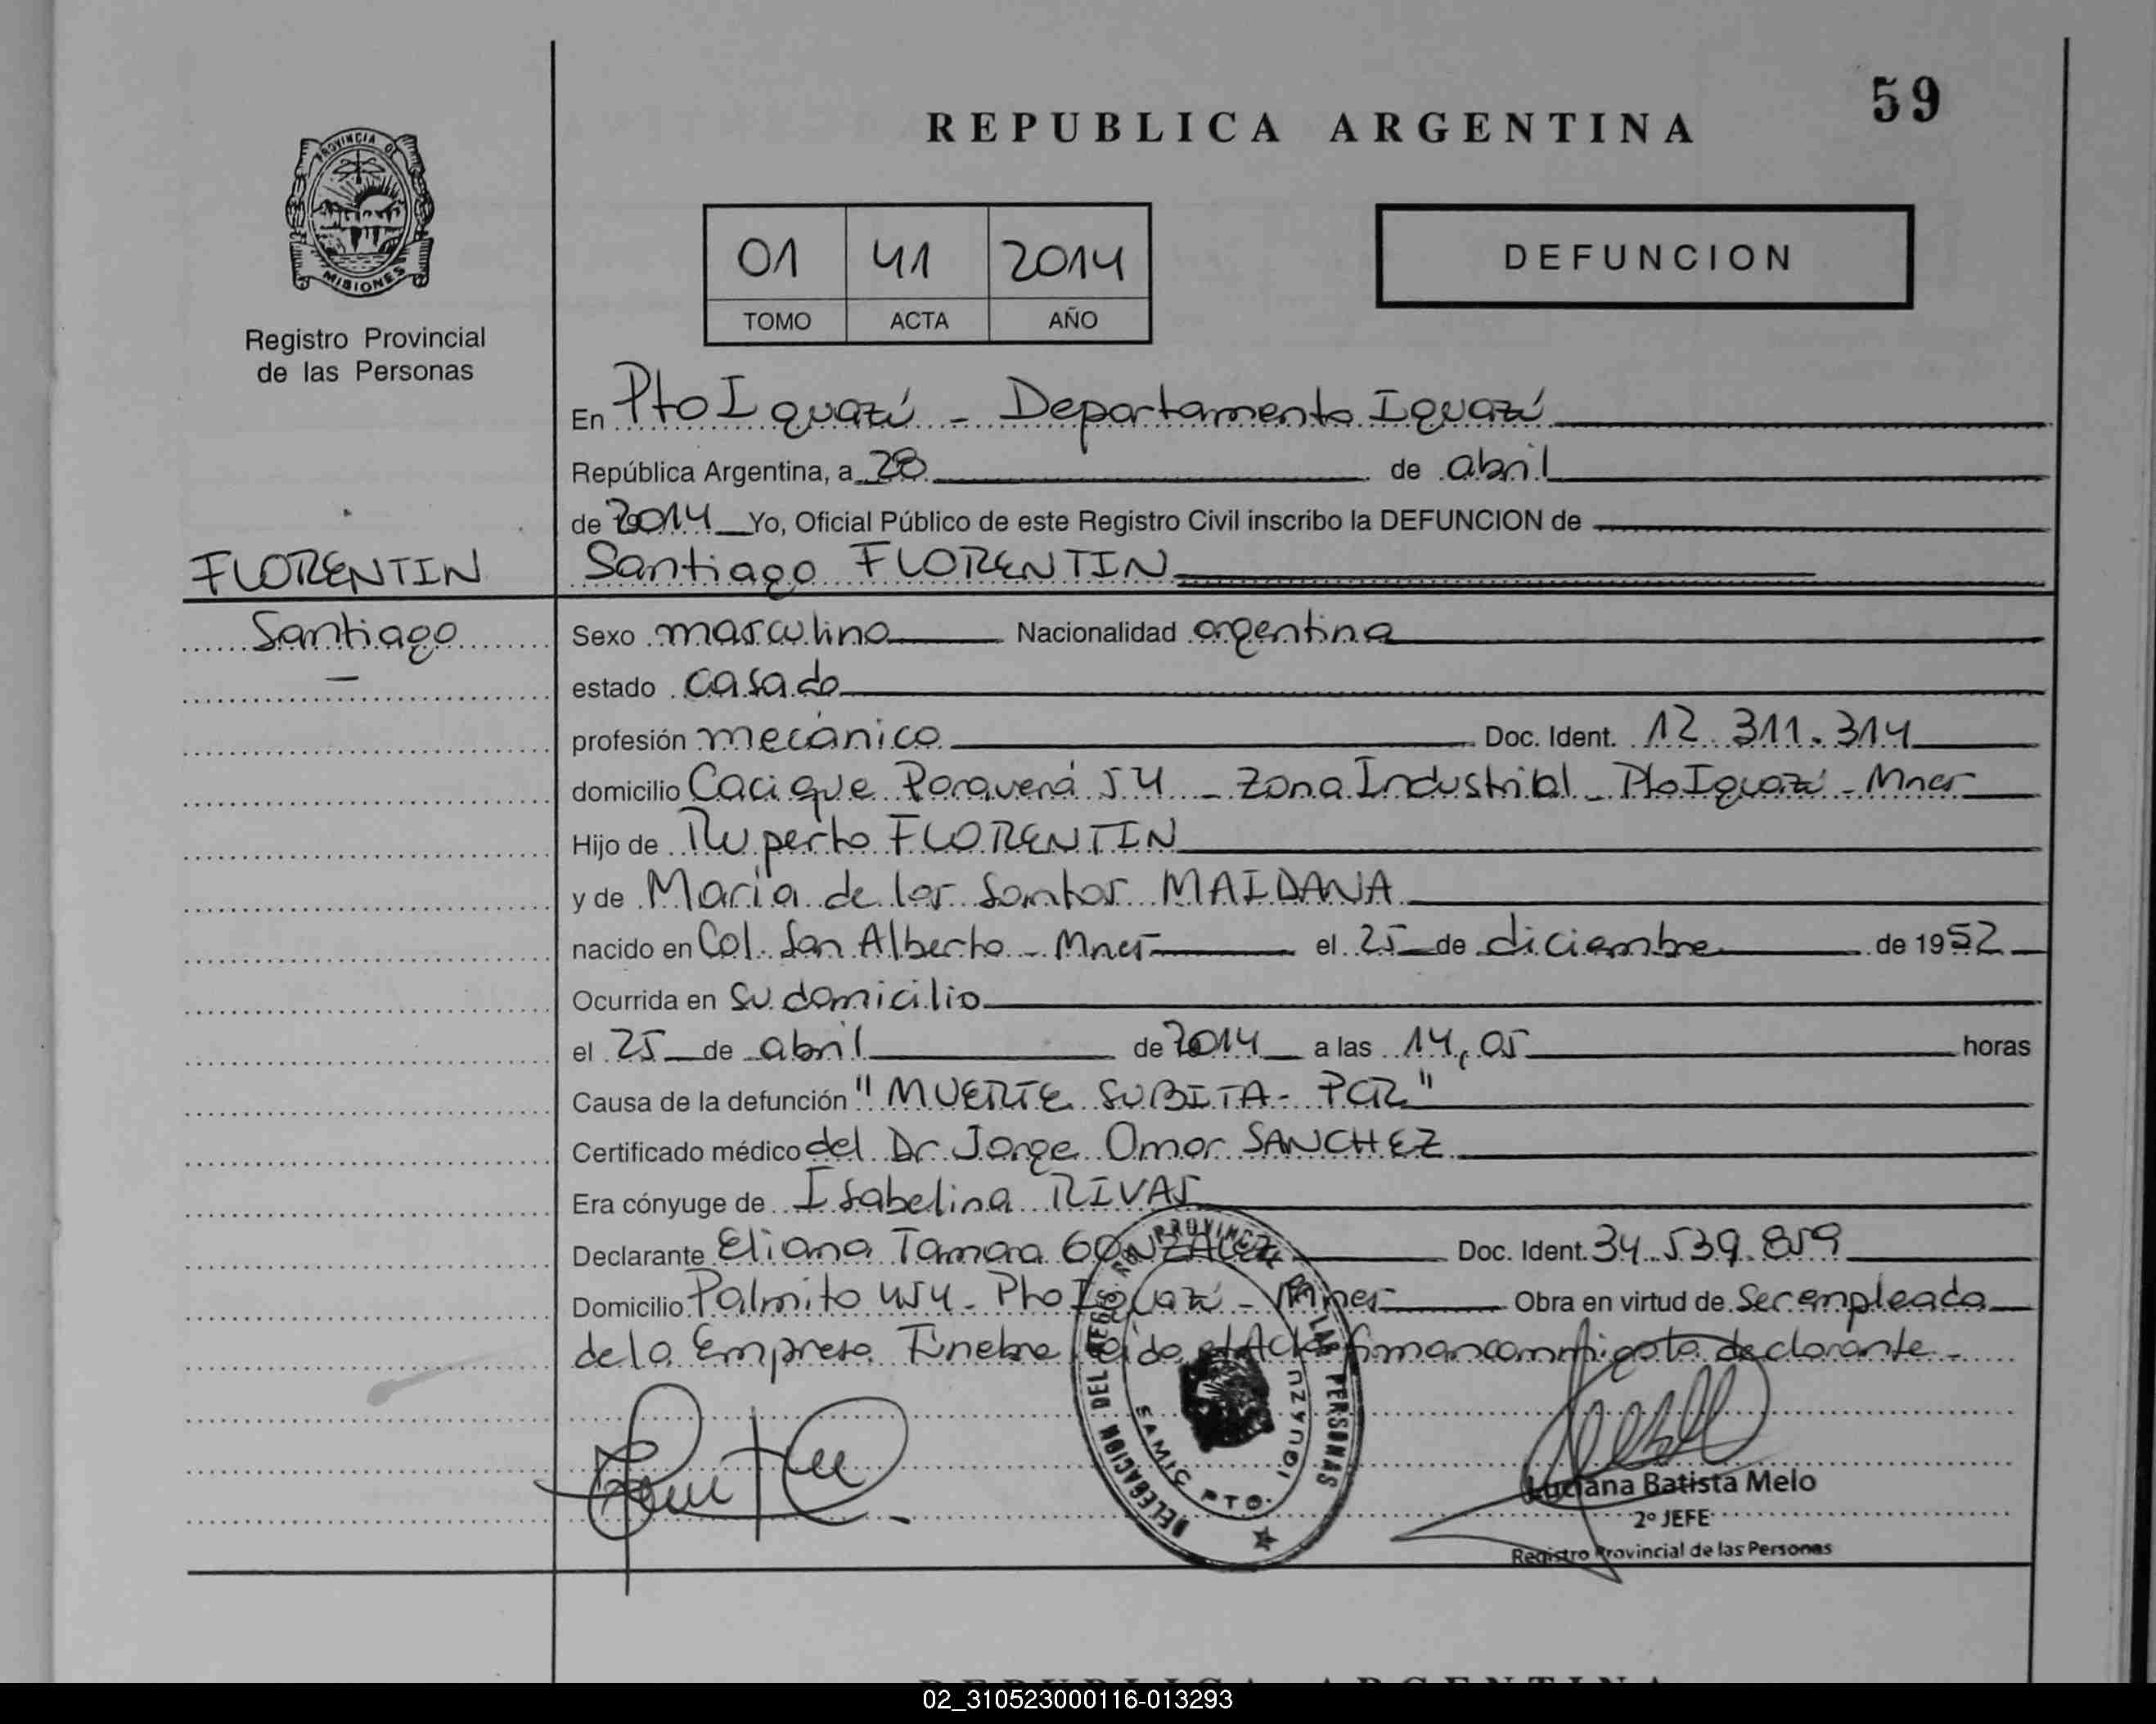 59
REPUBLICA ARGENTINA
PROVINCIA DE
MISIONES
Registro Provincial
de las Personas
01 41 2014
TOMO ACTA AÑO
DEFUNCION
En Pto Iguazú - Departamento Iguazú
República Argentina, a 28 de abril
de 2014 Yo, Oficial Público de este Registro Civil inscribo la DEFUNCION de
FLORENTIN
Santiago
Santiago FLORENTIN
Sexo masculino Nacionalidad argentina
estado casado
profesión mecánico Doc. Ident. 12.311.314
domicilio Cacique Paraverá 54 - Zona Industrial - Pto Iguazú - Mnes
Hijo de Ruperto FLORENTIN
y de María de los Santos MAIDANA
nacido en Col. San Alberto - Mnes el 25 de diciembre de 1952
Ocurrida en su domicilio
el 25 de abril de 2014 a las 14,05 horas
Causa de la defunción "MUERTE SUBITA - PCR"
Certificado médico del Dr Jorge Omar SANCHEZ
Era cónyuge de Isabelina RIVAS
Declarante Eliana Tamara GONZALEZ Doc. Ident. 34.539.859
Domicilio Palmito 454 - Pto Iguazú - Mnes Obra en virtud de ser empleada
de la Empresa Fúnebre leída el Acta firman conmigo la declarante -
DELEGACION DEL REGISTRO PROVINCIAL DE LAS PERSONAS
SAMIC PTO. IGUAZU
Luciana Batista Melo
2º JEFE
Registro Provincial de las Personas
REPUBLICA ARGENTINA
02_310523000116-013293